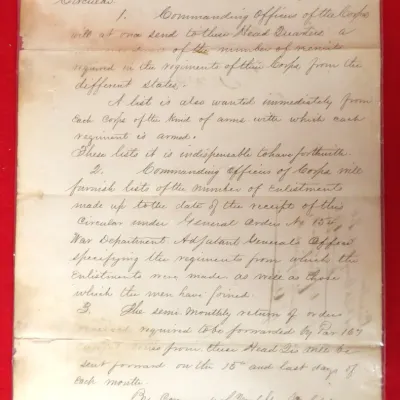 Circular.
1. Commanding Officers of the Corps
will at once send to these Head Quarters a
of the number of recruits
required in the regiments of their Corps from the
different states.
A list is also wanted immediately from
each Corps of the kind of arms with which each
regiment is armed.
These lists it is indispensable to have forthwith.
2. Commanding Officers of Corps will
furnish lists of the number of Enlistments
made up to the date of the receipt of this
Circular under General Orders No 154
War Department Adjutant General's Office
specifying the regiments from which the
Enlistments were made as well as those
which the men have joined.
3. The semi monthly return of
required to be forwarded by Par 167
from these Head Qrs will be
sent forward on the 15th and last days of
each month.
By